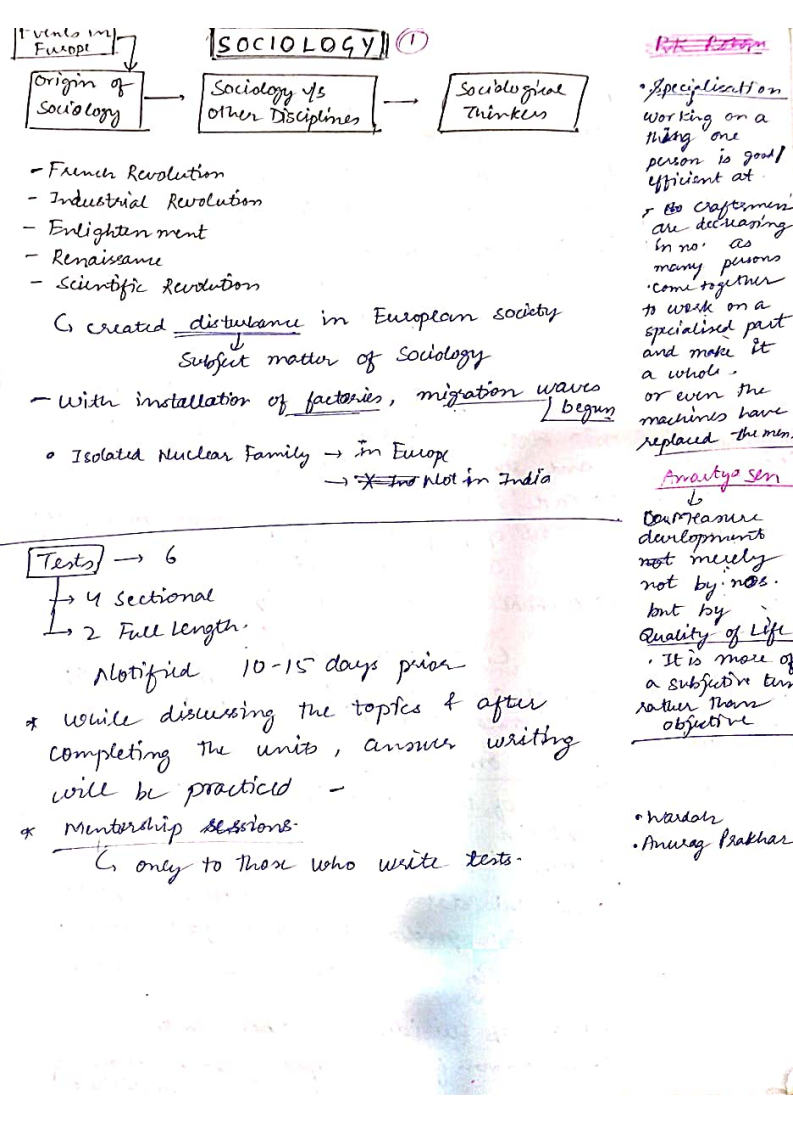 Events in
Europe
SOCIOLOGY
1
Origin of
Sociology
Sociology v/s
Other Disciplines
Sociological
Thinkers
- French Revolution
- Industrial Revolution
- Enlightenment
- Renaissance
- Scientific Revolution
created disturbance in European society
Subject matter of Sociology
- With installation of factories, migration waves
begun
• Isolated Nuclear Family → in Europe
→ Not in India
Tests → 6
→ 4 Sectional
→ 2 Full Length.
Notified 10-15 days prior
* While discussing the topics & after
completing the units, answer writing
will be practiced -
* Mentorship sessions.
only to those who write tests.
• Specialisation
working on a
thing one
person is good/
efficient at.
craftsmen
are decreasing
in no. as
many persons
come together
to work on a
specialised part
and make it
a whole.
or even the
machines have
replaced the men.
Amartya Sen
Measure
development
not merely
not by nos.
but by
Quality of Life
. It is more of
a subjective
rather than
objective
• Wardah
• Anurag Prakhar